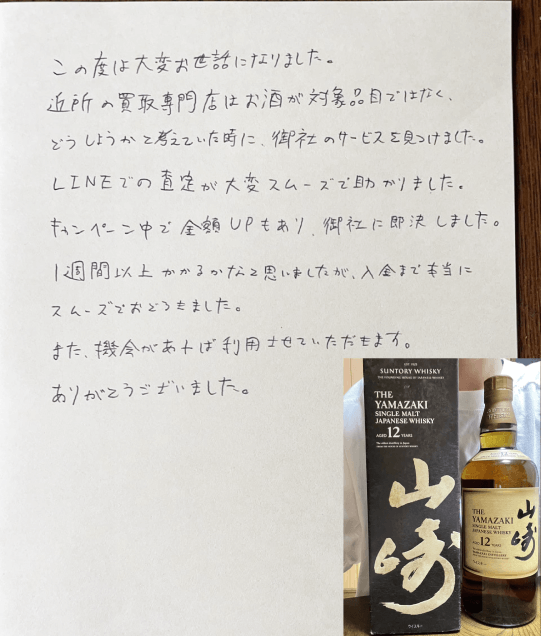 この度は大変お世話になりました。
近所の買取専門店はお酒が対象品目ではなく、
どうしようかと考えていた時に、御社のサービスを見つけました。
LINEでの査定が大変スムーズで助かりました。
キャンペーン中で金額UPもあり、御社に即決しました。
1週間以上かかるかなと思いましたが、入金まで本当に
スムーズでおどろきました。
また、機会があれば利用させていただきます。
ありがとうございました。
SUNTORY WHISKY
THE
YAMAZAKI
SINGLE MALT
JAPANESE WHISKY
AGED 12 YEARS
山崎
ウイスキー
THE
YAMAZAKI
SINGLE MALT
JAPANESE WHISKY
AGED 12 YEARS
山崎
ウイスキー